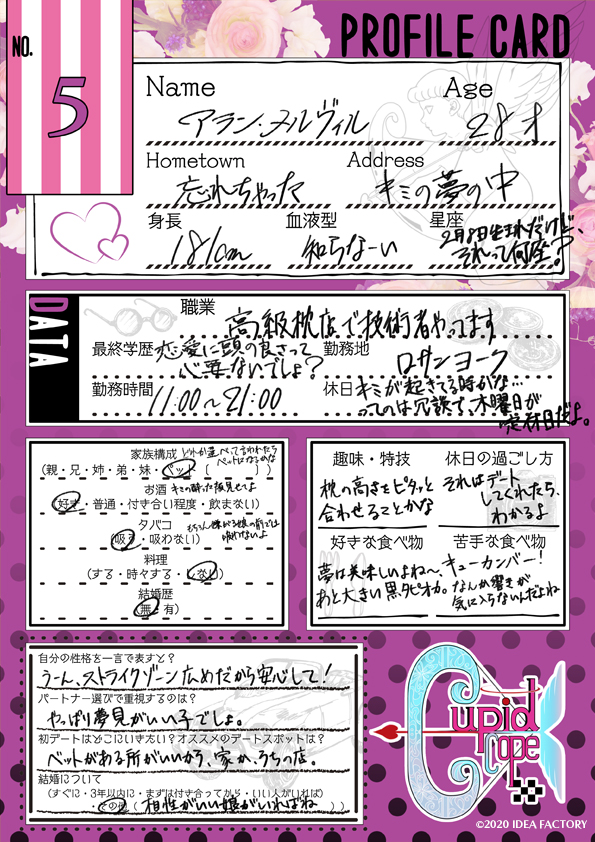 NO.
5
PROFILE CARD
Name
Age
アラン・メルヴィル
28才
Hometown
Address
忘れちゃった
キミの夢の中
身長
血液型
星座
181cm
知らなーい
2月8日生まれだけど、
それって何座?
DATA
職業
高級枕店で技術者やってます
最終学歴
恋愛に頭の良さって
心要ないでしょ?
勤務地
ロサンヨーク
勤務時間
11:00~21:00
休日
キミが起きてる時かな…
ってのは冗談で、木曜日が
定休日だよ。
家族構成
どれか選べって言われたら
ペットになるかな
(親・兄・姉・弟・妹・ペット[ ])
お酒
キミの酔った顔見せてよ
(好き・普通・付き合い程度・飲まない)
タバコ
もちろん嫌がる娘の前では
吸わないよ
(吸う・吸わない)
料理
(する・時々する・しない)
結婚歴
(無・有)
趣味・特技
枕の高さをピタッと
合わせることかな
休日の過ごし方
それはデート
してくれたら、
わかるよ
好きな食べ物
夢は美味しいよね~、
あと大きい黒タピオカ。
苦手な食べ物
キューカンバー!
なんか響きが
気に入らないんだよね
自分の性格を一言で表すと?
うーん、ストライクゾーン広めだから安心して!
パートナー選びで重視するのは?
やっぱり夢見がいい子でしょ。
初デートはどこにいきたい?オススメのデートスポットは?
ベットがある所がいいから、家か、うちの店。
結婚について
(すぐに・3年以内に・まずは付き合ってから・いい人がいれば)
・その他(相性がいい娘がいればね))
Cupid
Cope
©2020 IDEA FACTORY